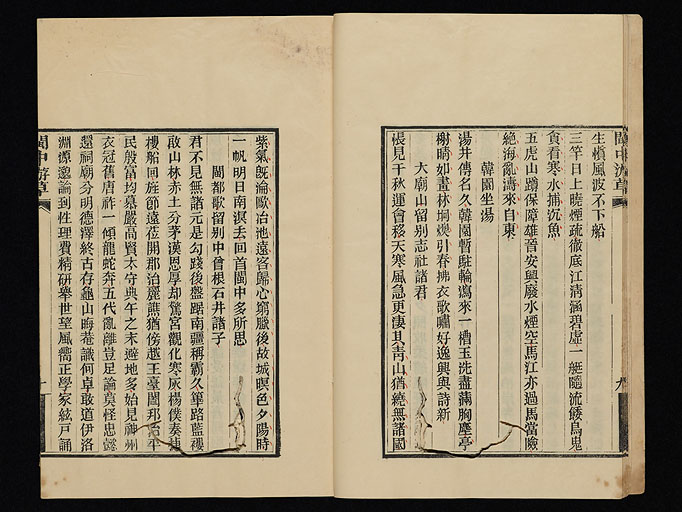 生憎風波不下船
三竿日上曉煙疏徹底江清涵碧虛一艇隨流倭鳥鬼
貪看寒水捕沉魚
五虎山蹲保障雄晉安興廢水煙空馬江亦過馬當險
絶海亂濤來自東
韓園坐湯
湯井傳名久韓園暫駐輪瀉來一槽玉洗盡滿胸塵亭
榭晴如畫林坰煖引春拂衣歌嘯好逸興與詩新
大廟山留別志社諸君
悵見千秋運會移天寒風急更淒其青山猶繞無諸國
九
閩中游草
紫氣旣淪歐冶池遠客歸心窮臘後故城暝色夕陽時
一帆明日南溟去回首閩中多所思
閩都歌留別中曾根石井諸子
君不見無諸元是勾踐後盤踞南疆稱霸久篳路藍褸
啟山林赤土分茅漢恩厚却驚宮觀化寒灰楊僕奏
樓船回旌節遠莅開郡治麗譙猶傍越王臺閩邦治平
民殷富均慕嚴高賢太守典午之末避地多始見神州
衣冠舊唐祚一傾龍蛇奔五代亂離豈足論莫怪忠懿
還祠廟分明德澤終古存龜山晦菴識何卓敢道伊洛
淵源邈論到性理費精硏舉世望風嚮正學家絃戶誦
閩中游草
十